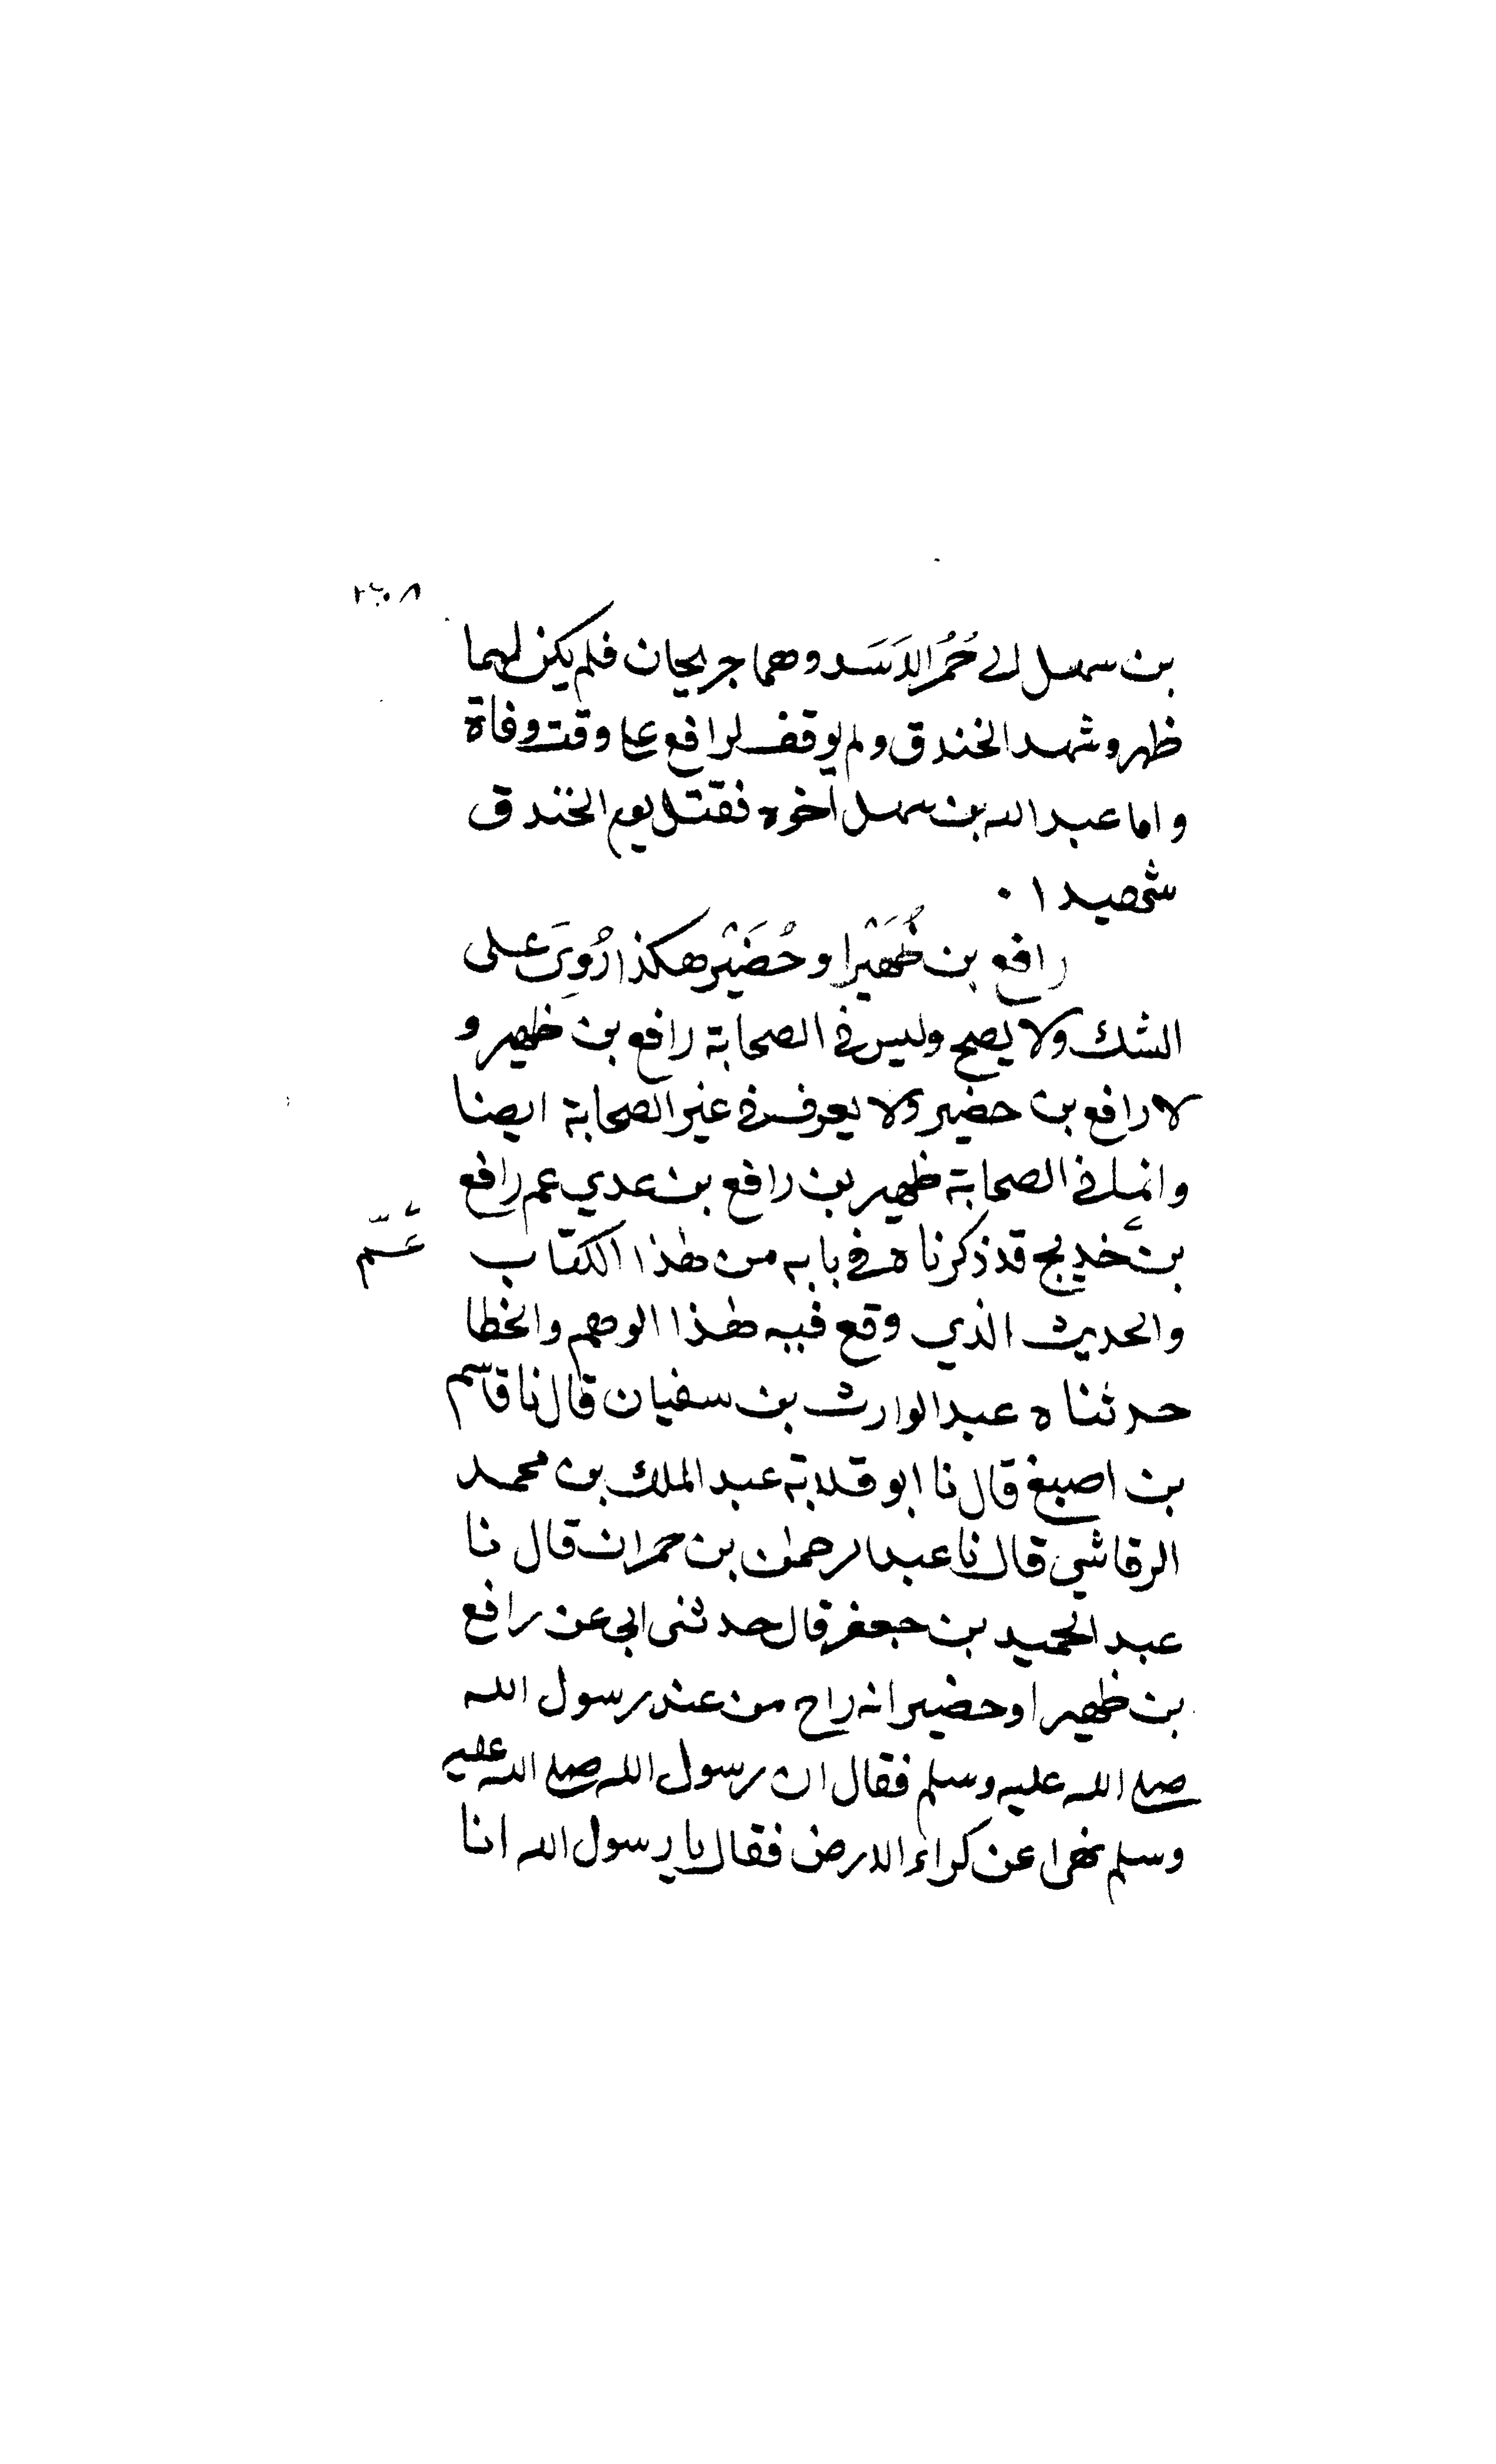 بن سهل الى حُمْرَ الاَسَد وهما جريحان فلم يكن لهما
ظهر وشهد الخندق ولم يوقف لرافع على وقت وفاة
واما عبد الله بن سهل اخوه فقتل يوم الخندق
شهيدا ٠
رافع بن ظُهَيْر او حُضَيْر هكذا رُوِيَ على
الشك ولا يصح وليس في الصحابة رافع بن ظهير و
لا رافع بن حضير ولا يعرف في غير الصحابة ايضا
وانما في الصحابة ظهير بن رافع بن عدي عم رافع
بن خديج قد ذكرناه في بابه من هذا الكتاب
والحديث الذي وقع فيه هذا الوهم والخطا
حدثناه عبد الوارث بن سفيان قال نا قاسم
بن اصبغ قال نا ابو قلابة عبد الملك بن محمد
الرقاشي قال نا عبد الرحمن بن حمران قال نا
عبد الحميد بن جعفر قال حدثنى ابي عن رافع
بن ظهير او حضير انه راح من عند رسول الله
صلى الله عليه وسلم فقال ان رسول الله صلى الله عليه
وسلم نهى عن كراء الارض فقال يا رسول الله انا